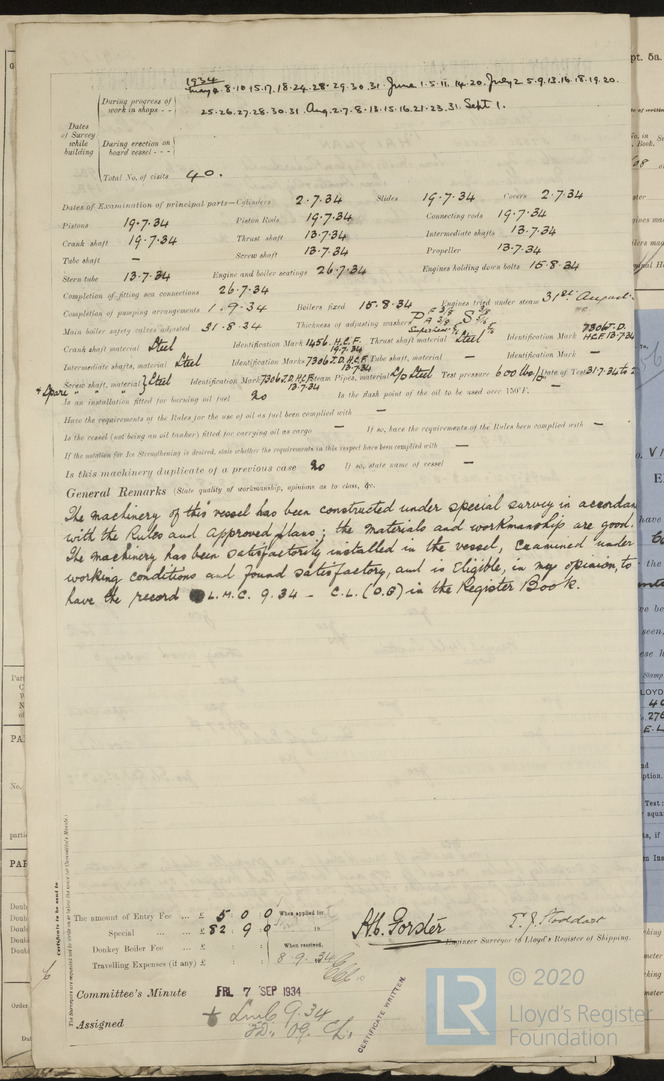 1934
May 8.10.15.17.18.24.28.29.30.31. June 1.5.11.14.20. July 2.5.9.13.16.18.19.20.
During progress of work in shops - -
25.26.27.28.30.31. Aug. 2.7.8.13.15.16.21.23.31. Sept 1.
Dates of Survey while building
During erection on board vessel - - -
Total No. of visits 40.
Dates of Examination of principal parts—Cylinders 2.7.34 Slides 19.7.34 Covers 2.7.34
Pistons 19.7.34 Piston Rods 19.7.34 Connecting rods 19.7.34
Crank shaft 19.7.34 Thrust shaft 13.7.34 Intermediate shafts 13.7.34
Tube shaft — Screw shaft 13.7.34 Propeller 13.7.34
Stern tube 13.7.34 Engine and boiler seatings 26.7.34 Engines holding down bolts 15.8.34
Completion of fitting sea connections 26.7.34
Completion of pumping arrangements 1.9.34 Boilers fixed 15.8.34 Engines tried under steam 31st August.
Main boiler safety valves adjusted 31.8.34 Thickness of adjusting washers
Crank shaft material Steel Identification Mark 1456. H.C.F. 19.7.34 Thrust shaft material Steel Identification Mark 7306 T.D. H.C.F. 13.7.34
Intermediate shafts, material Steel Identification Marks 7306 T.D. H.C.F. 13.7.34 Tube shaft, material — Identification Mark —
+ Spare " " Screw shaft, material } Steel Identification Mark 7306 T.D. H.C.F. 13.7.34 Steam Pipes, material S/D Steel Test pressure 600 lbs/□" Date of Test 31.7.34 to 2
Is an installation fitted for burning oil fuel No Is the flash point of the oil to be used over 150°F. —
Have the requirements of the Rules for the use of oil as fuel been complied with —
Is the vessel (not being an oil tanker) fitted for carrying oil as cargo — If so, have the requirements of the Rules been complied with —
If the notation for Ice Strengthening is desired, state whether the requirements in this respect have been complied with —
Is this machinery duplicate of a previous case No If so, state name of vessel —
General Remarks (State quality of workmanship, opinions as to class, &c.
The machinery of this vessel has been constructed under special survey in accordan
with the Rules and approved plans; the materials and workmanship are good.
The machinery has been satisfactorily installed in the vessel, examined under
working conditions and found satisfactory, and is eligible, in my opinion, to
have the record L.M.C. 9.34 - C.L. (O.G) in the Register Book.
The amount of Entry Fee ... £ 5 : 0 : 0 When applied for,
Special ... ... £ 82 : 9 : 0 19
Donkey Boiler Fee ... £ : : When received,
Travelling Expenses (if any) £ : : 8.9.34
Engineer Surveyor to Lloyd's Register of Shipping.
Committee's Minute FRI. 7 SEP 1934
Assigned + Lmb 9.34
CERTIFICATE WRITTEN.
LR © 2020
Lloyd's Register
Foundation